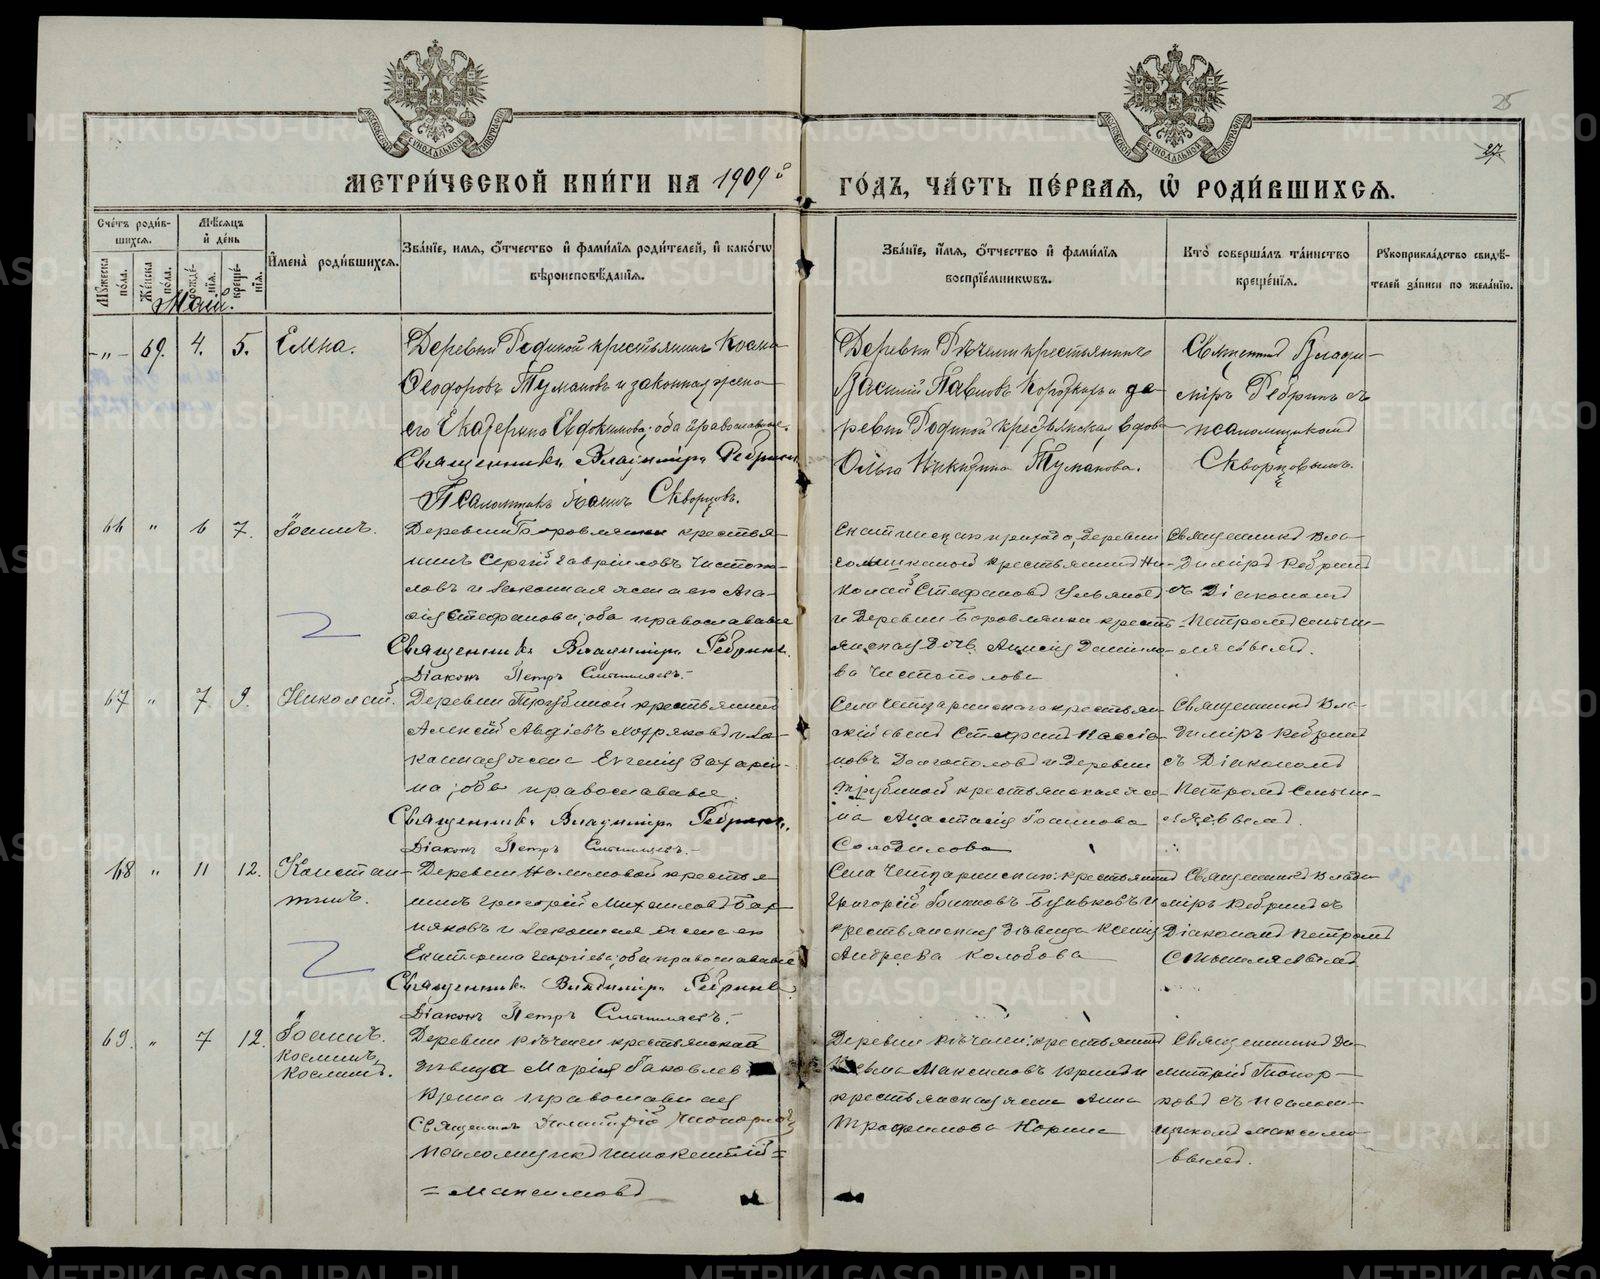 25
27.
МЕТРИ́ЧЕСКОЙ КНИ́ГИ НА 1909й ГО́ДЪ, ЧА́СТЬ ПЕ́РВАѦ, Ѡ҆ РОДИ́ВШИХСѦ.
Сче́тъ роди́в-
шихсѧ.
Мꙋ́жеска по́ла.
Же́нска по́ла.
Мѣ́сѧцъ
и҆ де́нь
рожде́-
нїѧ.
креще́-
нїѧ.
И҆мена̀ роди́вшихсѧ.
Зва́нїе, и҆мѧ, ѻ҆́тчество и҆ фами́лїѧ роди́телей, и҆ како́гѡ
вѣроисповѣ́данїѧ.
Зва́нїе, и҆́мѧ, ѻ҆́тчество и҆ фами́лїѧ
воспрїе́мникѡвъ.
Кто̀ соверша́лъ та́инство
креще́нїѧ.
Рꙋкоприкла́дство свидѣ́-
телей за́писи по жела́нїю.
Май.
-„- 69. 4. 5. Елена.
Деревни Родиной крестьянинъ Косма
Ѳеодоровъ Тумановъ и законная жена
его Екатерина Евдокимова; оба православные.
Священникъ Владиміръ Ребринъ
Псаломщикъ Іоаннъ Скворцовъ.
Деревни Рѣчелги крестьянинъ
Василій Павловъ и де-
ревни Родиной крестьянская вдова
Ольга Никитина Туманова.
Священникъ Влади-
міръ Ребринъ съ
псаломщикомъ
Скворцовымъ.
66 „ 6 7. Іоаннъ.
Деревни Боровлянки крестья-
нинъ Сергій Гавріиловъ Чистопо-
ловъ и законная жена его Ага-
ѳія Стефанова; оба православные
Священникъ Владиміръ Ребринъ.
Діаконъ Петръ Смышляевъ.-
прихода, деревни
крестьянинъ Ни-
колай Стефановъ Ульяновъ
и деревни Боровлянки кресть-
янская дочь Анисія Данило-
ва Чистополова
Священникъ Вла-
диміръ Ребринъ
съ Діакономъ
Петромъ Смыш-
ляевымъ.
67 „ 7. 9. Николай.
Деревни Трубиной крестьянинъ
Алексѣй Авдіевъ и за-
конная жена Евгенія Захарі-
на; оба православные.
Священникъ Владиміръ Ребринъ.
Діаконъ Петръ Смышляевъ.-
Села Четкаринскаго крестьян-
скій сынъ Стефанъ Кассіа-
новъ Долгополовъ и деревни
Трубиной крестьянская же-
на Анастасія Іоаннова
Солодилова
Священникъ Вла-
диміръ Ребринъ
съ Діакономъ
Петромъ Смыш-
ляевымъ.
68 „ 11 12. Констан-
тинъ.
Деревни Налимовой крестья
нинъ Григорій Михаиловъ Бах-
няковъ и законная жена его
Екатерина Георгіева; оба православные
Священникъ Владиміръ Ребринъ.
Діаконъ Петръ Смышляевъ.-
Села Четкаринскаго: крестьянинъ
Григорій Іоанновъ и
крестьянская дѣвица Ксенія
Андреева Колобова
Священникъ Влади-
міръ Ребринъ съ
Діакономъ Петромъ
Смышляевымъ
69. „ 7 12. Іоаннъ.
Косминъ,
Косминъ.
Деревни Рѣчелги крестьянская
дѣвица Марія Іаковлева
православная
Священникъ Димитрій Топорковъ
Псаломщикъ Иннокентій=
= Максимовъ
Деревни Рѣчелги: крестьянинъ
Косьма Максимовъ и
крестьянская жена Анна
Трофимова
Священникъ Ди-
митрій Топор-
ковъ съ псалом-
щикомъ Максимо-
вымъ.